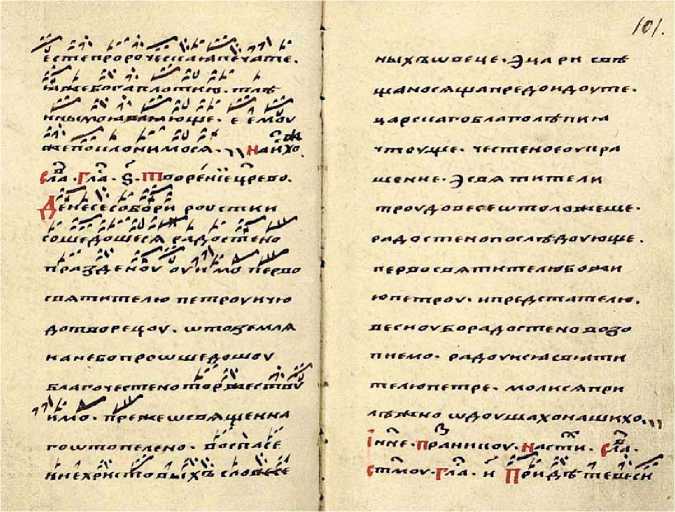 естепророческаꙗпечате.
ꙗжебогаплотию. тлѣ
жепоклонимосѧ. наихо
сла. гла. ѕ҃. твореніецрево.
Денесесобори роустии
сошедошесѧ радостено
празденоуоуимо перво
свѧтителю петроучю
дотворецоу. ѡтоземлѧ
нанебопрошедошоу
благочестеноторжествоу
имо. прежеѡсвѧщенна
гоѡтопелено. воспасе
101.
ныхъѡвеце. Эцари свѣ
щаносѧщапредоидоуте.
царскагоблаголѣпиꙗ
чтоуще. честеноеоукра
шение. Эсвѧтители
троудовесеѡтоложеше.
радостенопослѣдоующе.
первосвѧтителюбожи
юпетроу. ипредстателю.
весноуборадостеновозо
пиемо. радоуисѧсвѧти
телюпетре. молисѧпри
лѣжно ѡдоушахонашихо.
Ины. Праникоу. Насти. сла.
стмоу. гла. и҃ Придѣтевеси